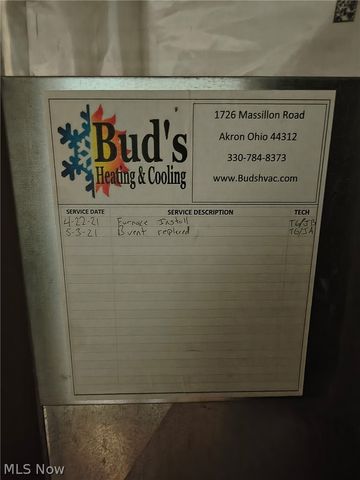 Bud's
Heating & Cooling
1726 Massillon Road
Akron Ohio 44312
330-784-8373
www.Budshvac.com
SERVICE DATE SERVICE DESCRIPTION TECH
4-22-21 Furnace Install
5-3-21 B vent replaced TG/JA
MLS Now